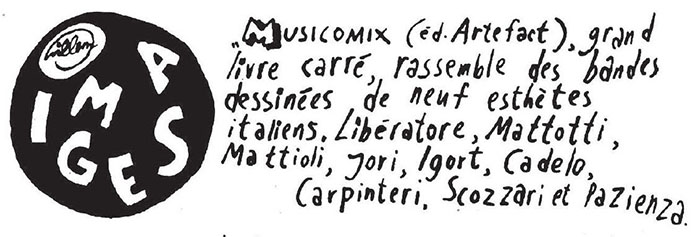 Willem
IMAGES
„Musicomix (éd. Artefact), grand
livre carré, rassemble des bandes
dessinées de neuf esthètes
italiens. Libératore, Mattotti,
Mattioli, Jori, Igort, Cadelo,
Carpinteri, Scozzari et Pazienza.